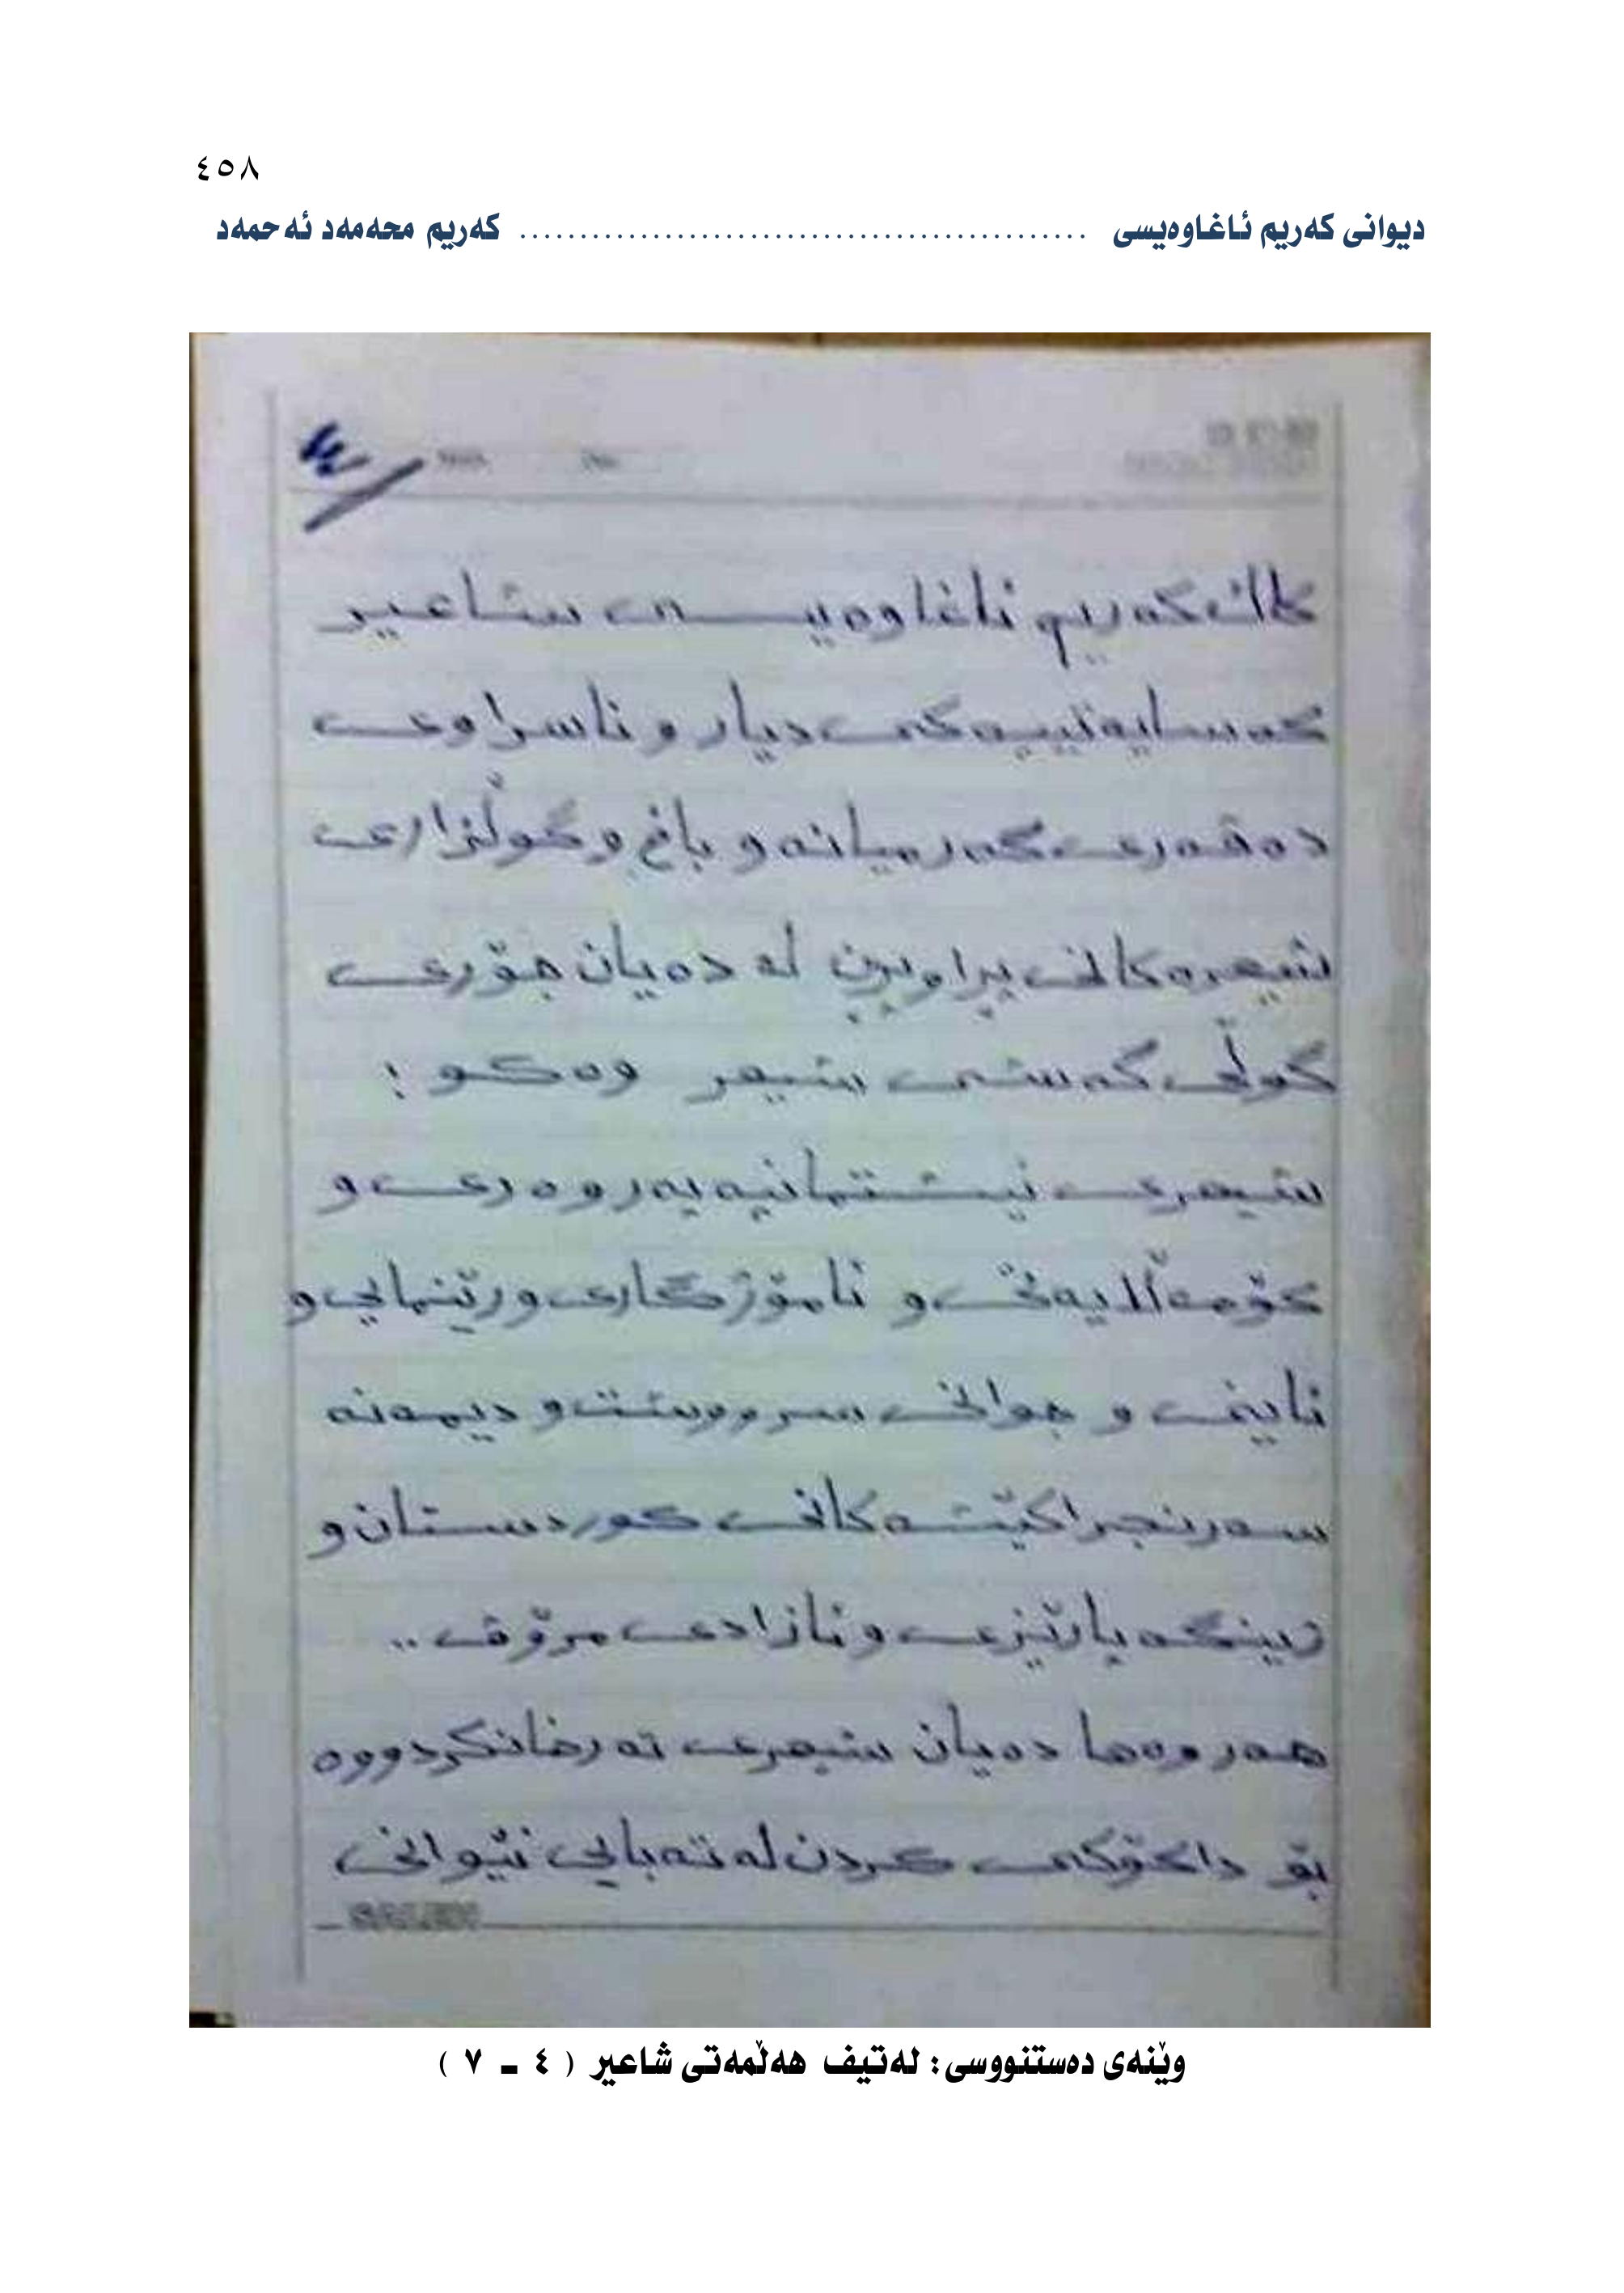 ٤٥٨
دیوانی کەریم ئاغاوەیسی ............................................... کەریم محەمەد ئەحمەد
٤
کاک کەریم ئاغاوەیسی شاعیر
کەسایەتییەکی دیار و ناسراوی
دەڤەری گەرمیانە و باغ و گوڵزاری
شیعرەکانی پڕاوپڕن لە دەیان جۆری
گوڵی گەشی شیعر وەکو :
شیعری نیشتمانپەروەری و
کۆمەڵایەتی و ئامۆژگاری و رێنمایی و
ئاینی و جوانی سرووشت و دیمەنە
سەرنجڕاکێشەکانی کوردستان و
ژینگەپارێزی و ئازادی مرۆڤ ..
هەروەها دەیان شیعری تەرخانکردووە
بۆ داکۆکی کردن لە تەبایی نێوانی
وێنەی دەستنووسی: لەتیف هەڵمەتی شاعیر ( ٤ ـ ٧ )